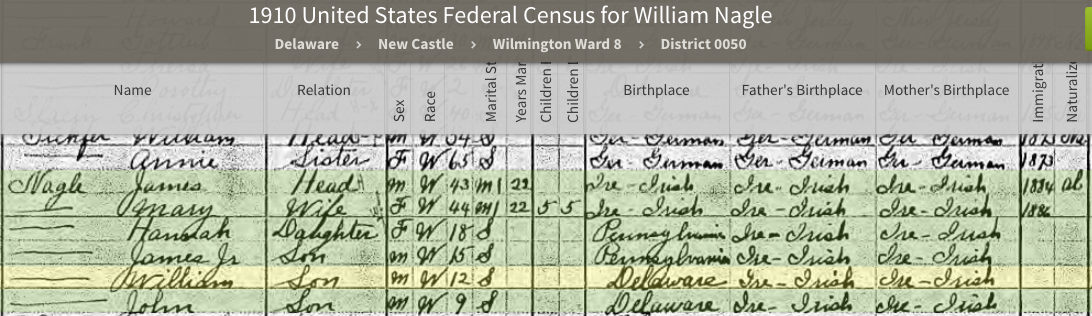 1910 United States Federal Census for William Nagle
Delaware › New Castle › Wilmington Ward 8 › District 0050
Name Relation Sex Race Marital St Years Mar Children Children Birthplace Father's Birthplace Mother's Birthplace Immigrat Naturaliz
William Head m W Ger-German Ger-German Ger-German
Annie Sister F W 65 S Ger-German Ger-German Ger-German 1873
Nagle James Head m W 43 m1 22 Ire-Irish Ire-Irish Ire-Irish 1884 al
Mary Wife F W 44 m1 22 5 5 Ire-Irish Ire-Irish Ire-Irish 1886
Hannah Daughter F W 18 S Pennsylvania Ire-Irish Ire-Irish
James Jr Son m W 15 S Pennsylvania Ire-Irish Ire-Irish
William Son m W 12 S Delaware Ire-Irish Ire-Irish
John Son m W 9 S Delaware Ire-Irish Ire-Irish